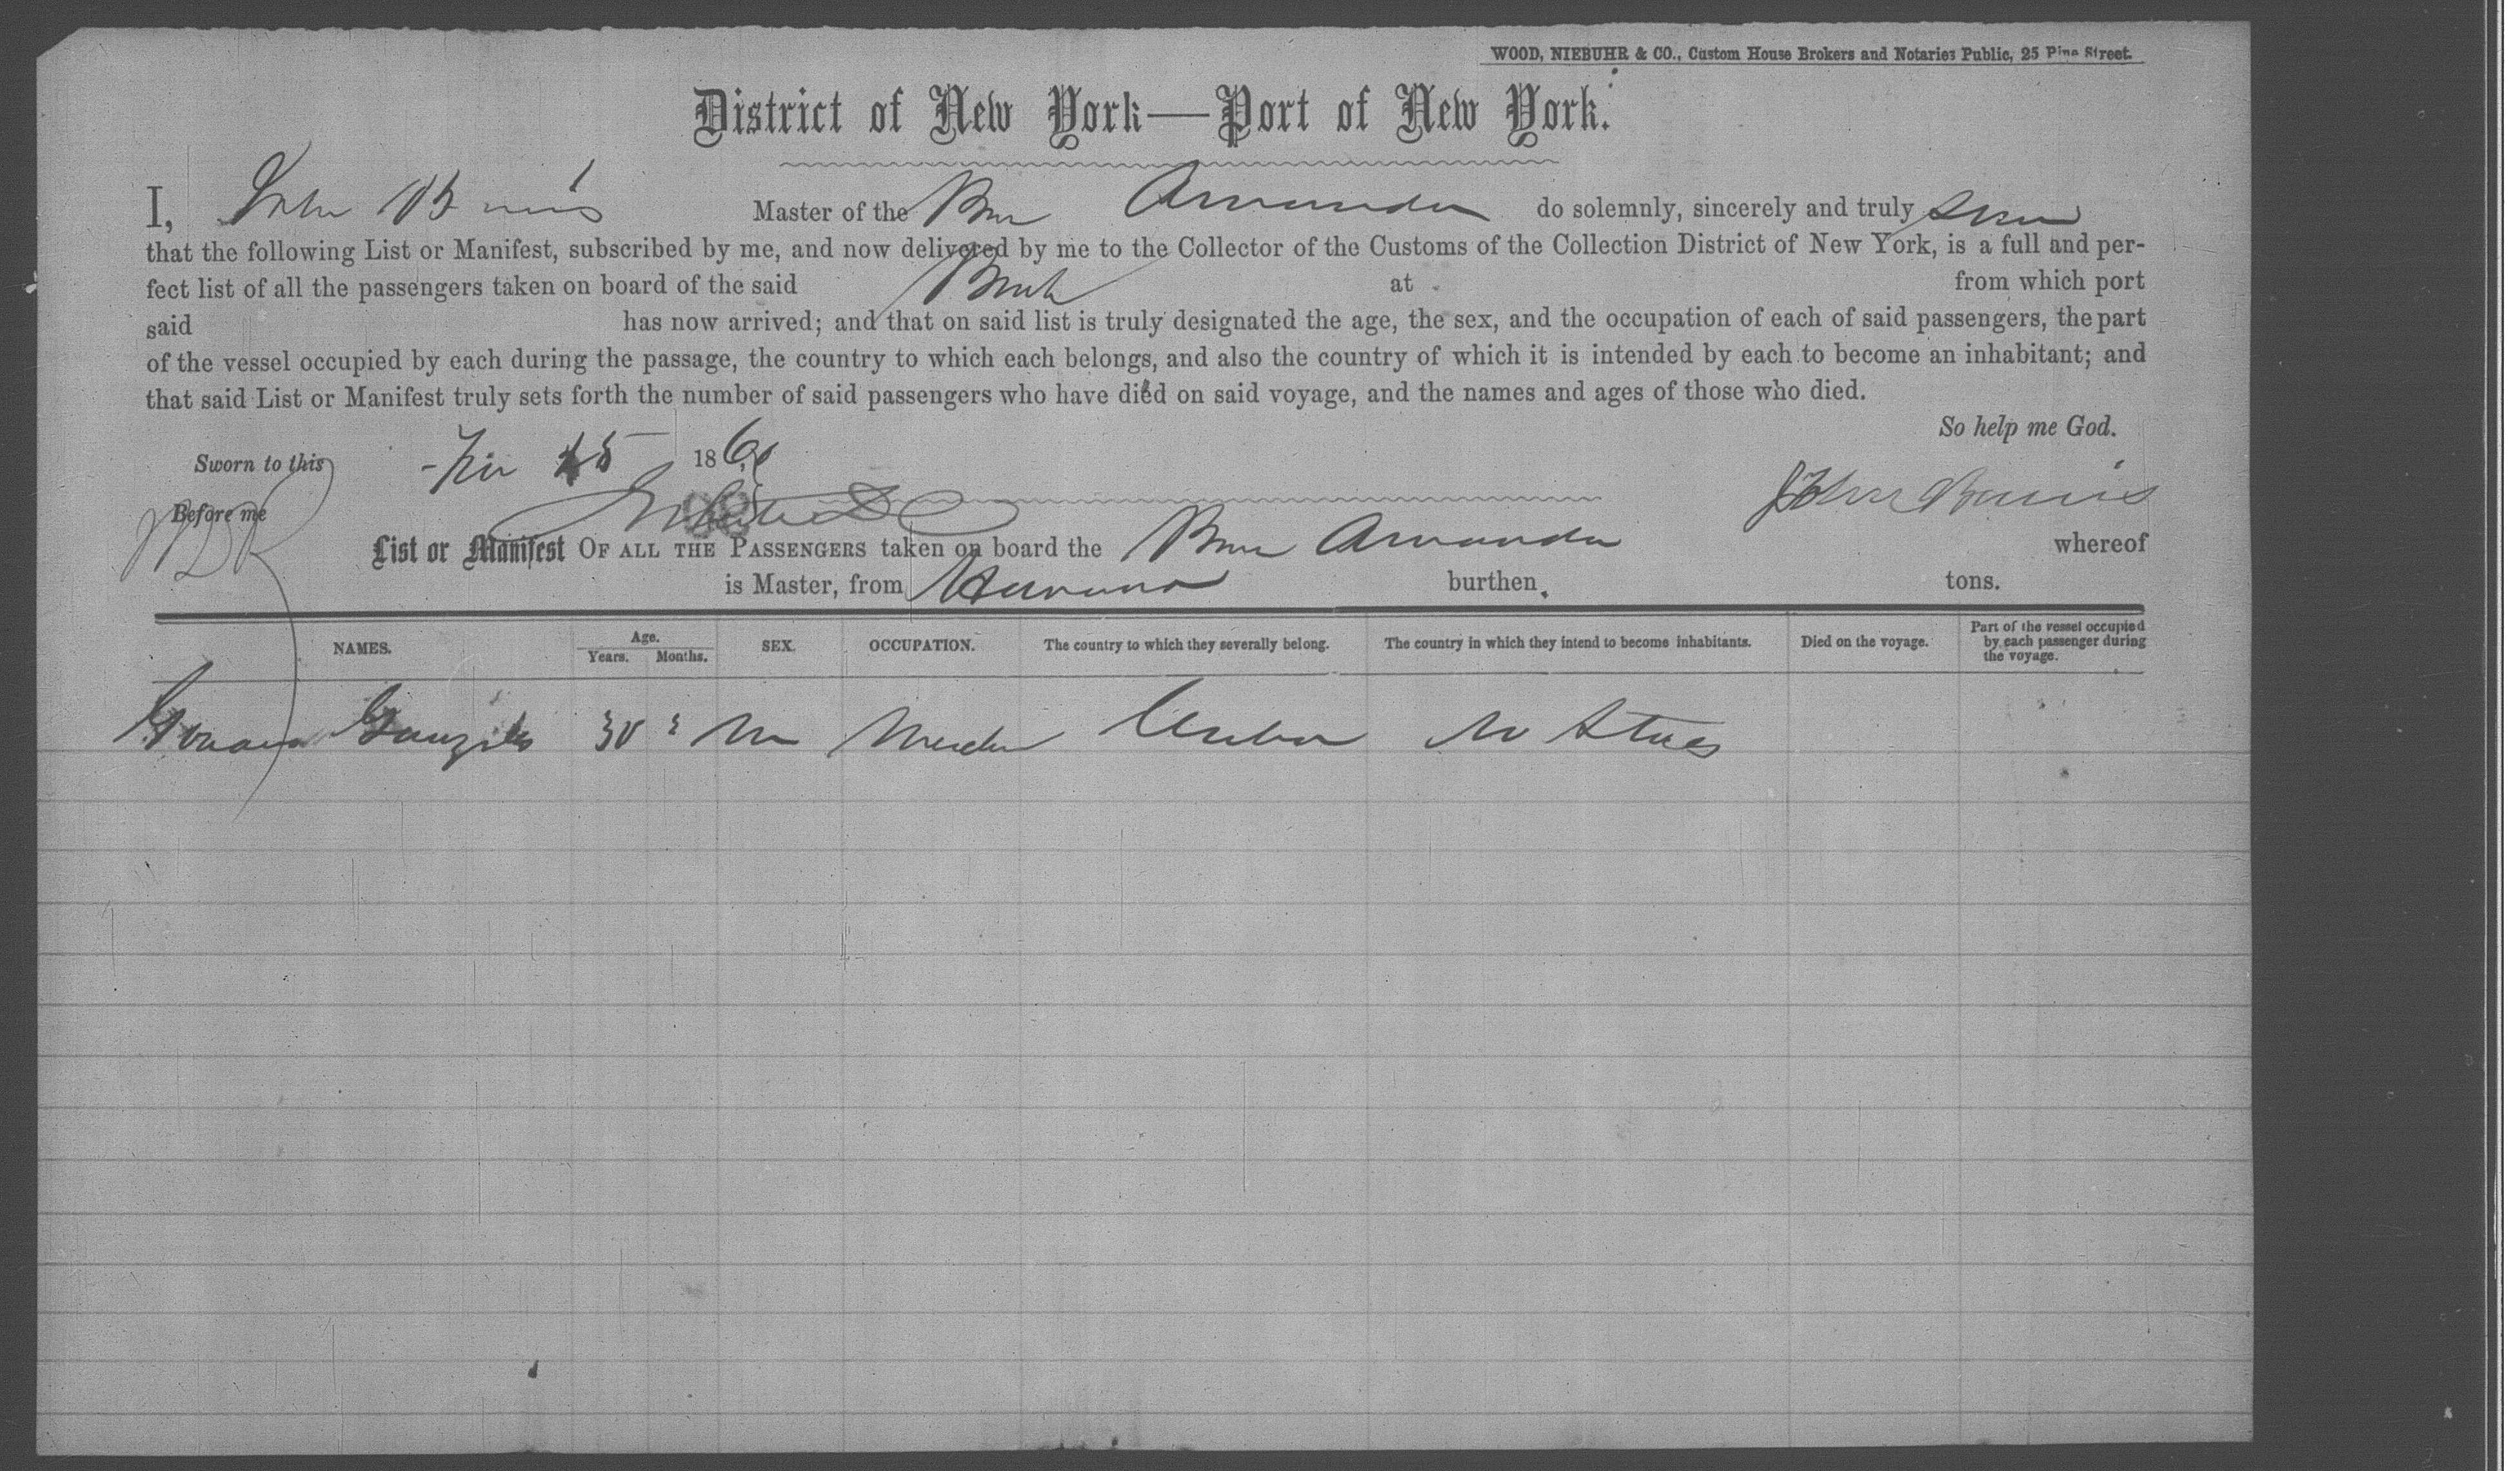 WOOD, NIEBUHR & CO., Custom House Brokers and Notaries Public, 25 Pine Street.
District of New York—Port of New York.
I, John Master of the Amanda do solemnly, sincerely and truly
that the following List or Manifest, subscribed by me, and now delivered by me to the Collector of the Customs of the Collection District of New York, is a full and per-
fect list of all the passengers taken on board of the said at from which port
said has now arrived; and that on said list is truly designated the age, the sex, and the occupation of each of said passengers, the part
of the vessel occupied by each during the passage, the country to which each belongs, and also the country of which it is intended by each to become an inhabitant; and
that said List or Manifest truly sets forth the number of said passengers who have died on said voyage, and the names and ages of those who died.
So help me God.
Sworn to this 15 186
Before me John
List or Manifest OF ALL THE PASSENGERS taken on board the Amanda whereof
is Master, from Havana burthen. tons.
NAMES. Age. Years. Months. SEX. OCCUPATION. The country to which they severally belong. The country in which they intend to become inhabitants. Died on the voyage. Part of the vessel occupied by each passenger during the voyage.
30 M Cuba States